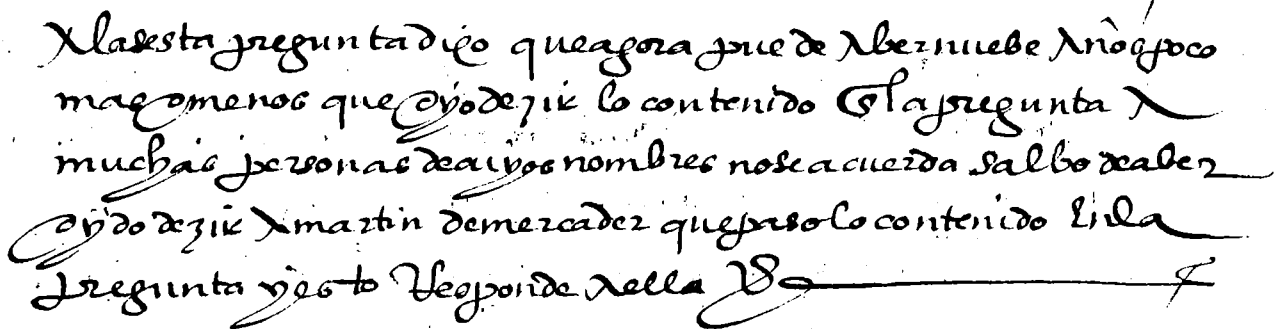 A la sesta pregunta dixo que agora puede aber nuebe años poco
mas o menos que oyo dezir lo contenido en la pregunta a
muchas personas de cuyos nombres no se acuerda salbo de aber
oydo dezir a martin de mercader que paso lo contenido en la
pregunta y esto responde a ella